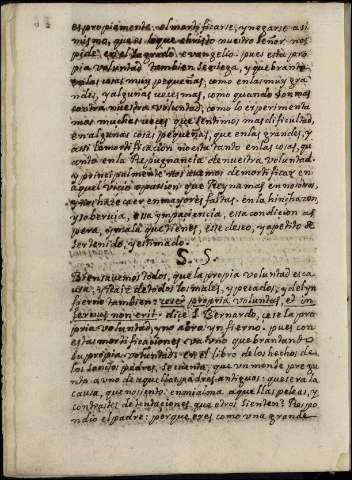 es propiamente el mortificarse, y negarse a si
mismo, que es lo que christo nuestro señor nos
pide en el sagrado evangelio. pues esta pro
pia voluntad tambien se niega, y quebranta
en las cosas muy pequeñas, como en las muy gran
des, y algunas veces mas, como quando son mas
contra nuestra voluntad, como lo experimenta
mos muchas veces que sentimos mas dificultad,
en algunas cosas pequeñas, que en las grandes, y
assi la mortificacion no esta tanto en las cosas, qu
anto en la Repugnancia de nuestra voluntad.
y principalmente nos avemos de mortificar en
aquel vicio o passion que Reyna mas en nosotros,
y nos haze caer en mayores faltas. en la hinchazon,
y soberuia, essa ympaciencia, essa condicion as
pera, y mala que tienes, esse deseo, y apetito de
ser tenido, y estimado.
S. S.
bien savemos todos, que la propia voluntad es ca
usa, y Raiz de todos los males, y pecados, y del yn
fierno tambien: cesset propria voluntas, et in
fernus non erit. dice S. Bernardo, cese la pro
pia voluntad, y no abra ynfierno. pues con
estas mortificaciones va uno quebrantando
su propia voluntad. en el libro de los hechos de
los santos padres, se cuenta, que un monje pregu
nto a uno de aquellos padres antiguos: que sera la
causa, que no siento en mi alma aquellas peleas, y
contrastes de tentaciones que otros sienten? Respo
ndio el padre: porque eres como una grande